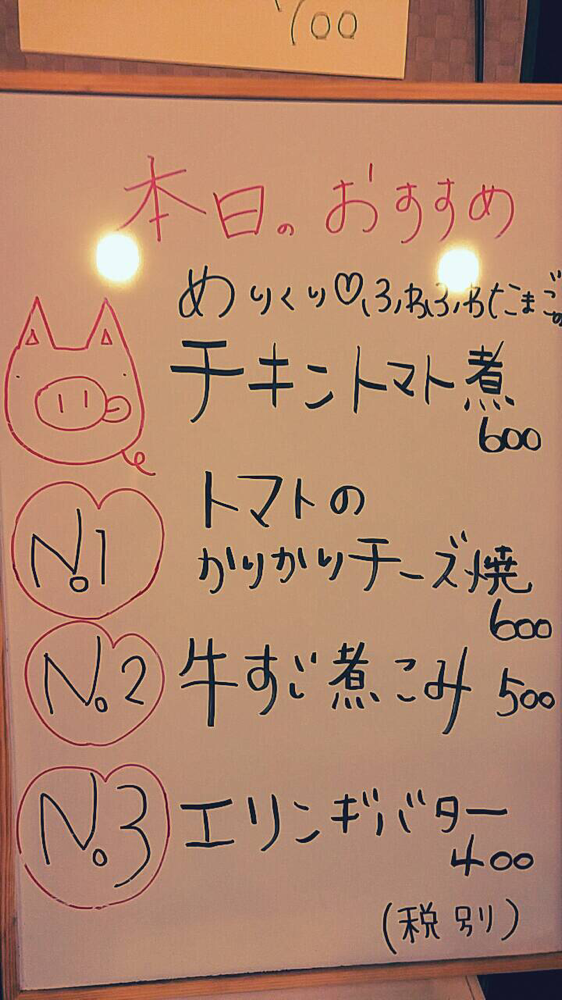 700
本日のおすすめ
めりくり♡ふわふわたまごの
チキントマト煮
600
トマトの
No.1
かりかりチーズ焼
600
No.2 牛すじ煮こみ 500
No.3 エリンギバター
400
(税別)